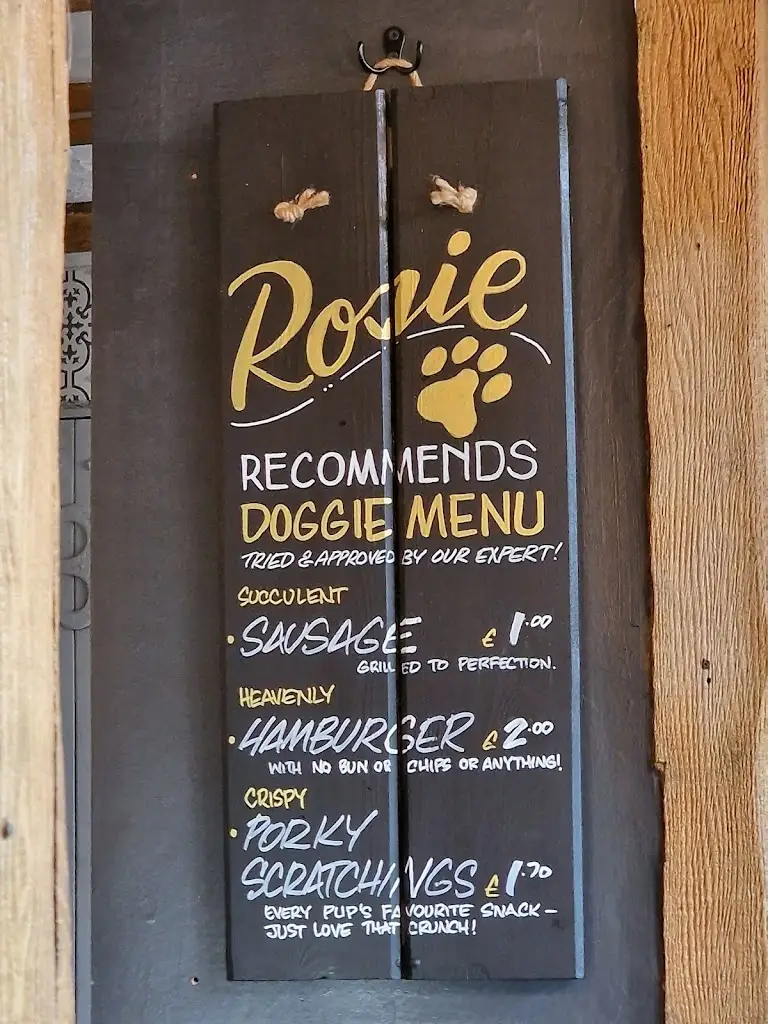 Rosie
RECOMMENDS
DOGGIE MENU
TRIED & APPROVED BY OUR EXPERT!
SUCCULENT
• SAUSAGE £1.00
GRILLED TO PERFECTION.
HEAVENLY
• HAMBURGER £2.00
WITH NO BUN OR CHIPS OR ANYTHING!
CRISPY
• PORKY
SCRATCHINGS £1.70
EVERY PUP'S FAVOURITE SNACK –
JUST LOVE THAT CRUNCH!